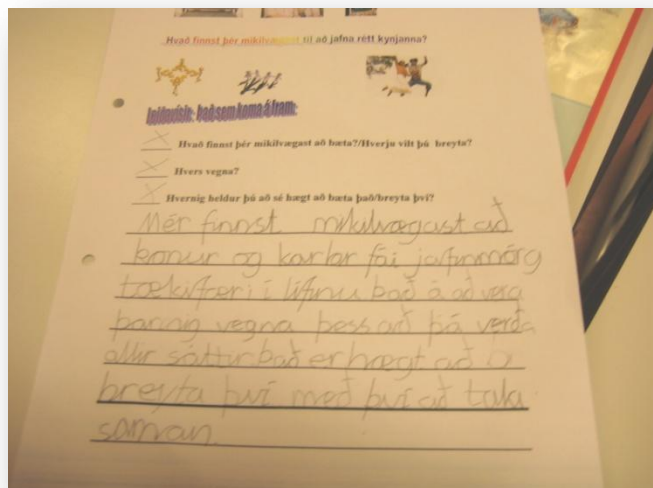 Hvað finnst þér mikilvægast til að jafna rétt kynjanna?
Leiðarvísir: Það sem koma á fram:
X Hvað finnst þér mikilvægast að bæta?/Hverju vilt þú breyta?
X Hvers vegna?
X Hvernig heldur þú að sé hægt að bæta það/breyta því?
Mér finnst mikilvægast að
konur og karlar fái jafnmörg
tækifæri í lífinu það á að vera
þannig vegna þess að þá verða
allir sáttur það er hægt að
breyta því með því að tala
saman